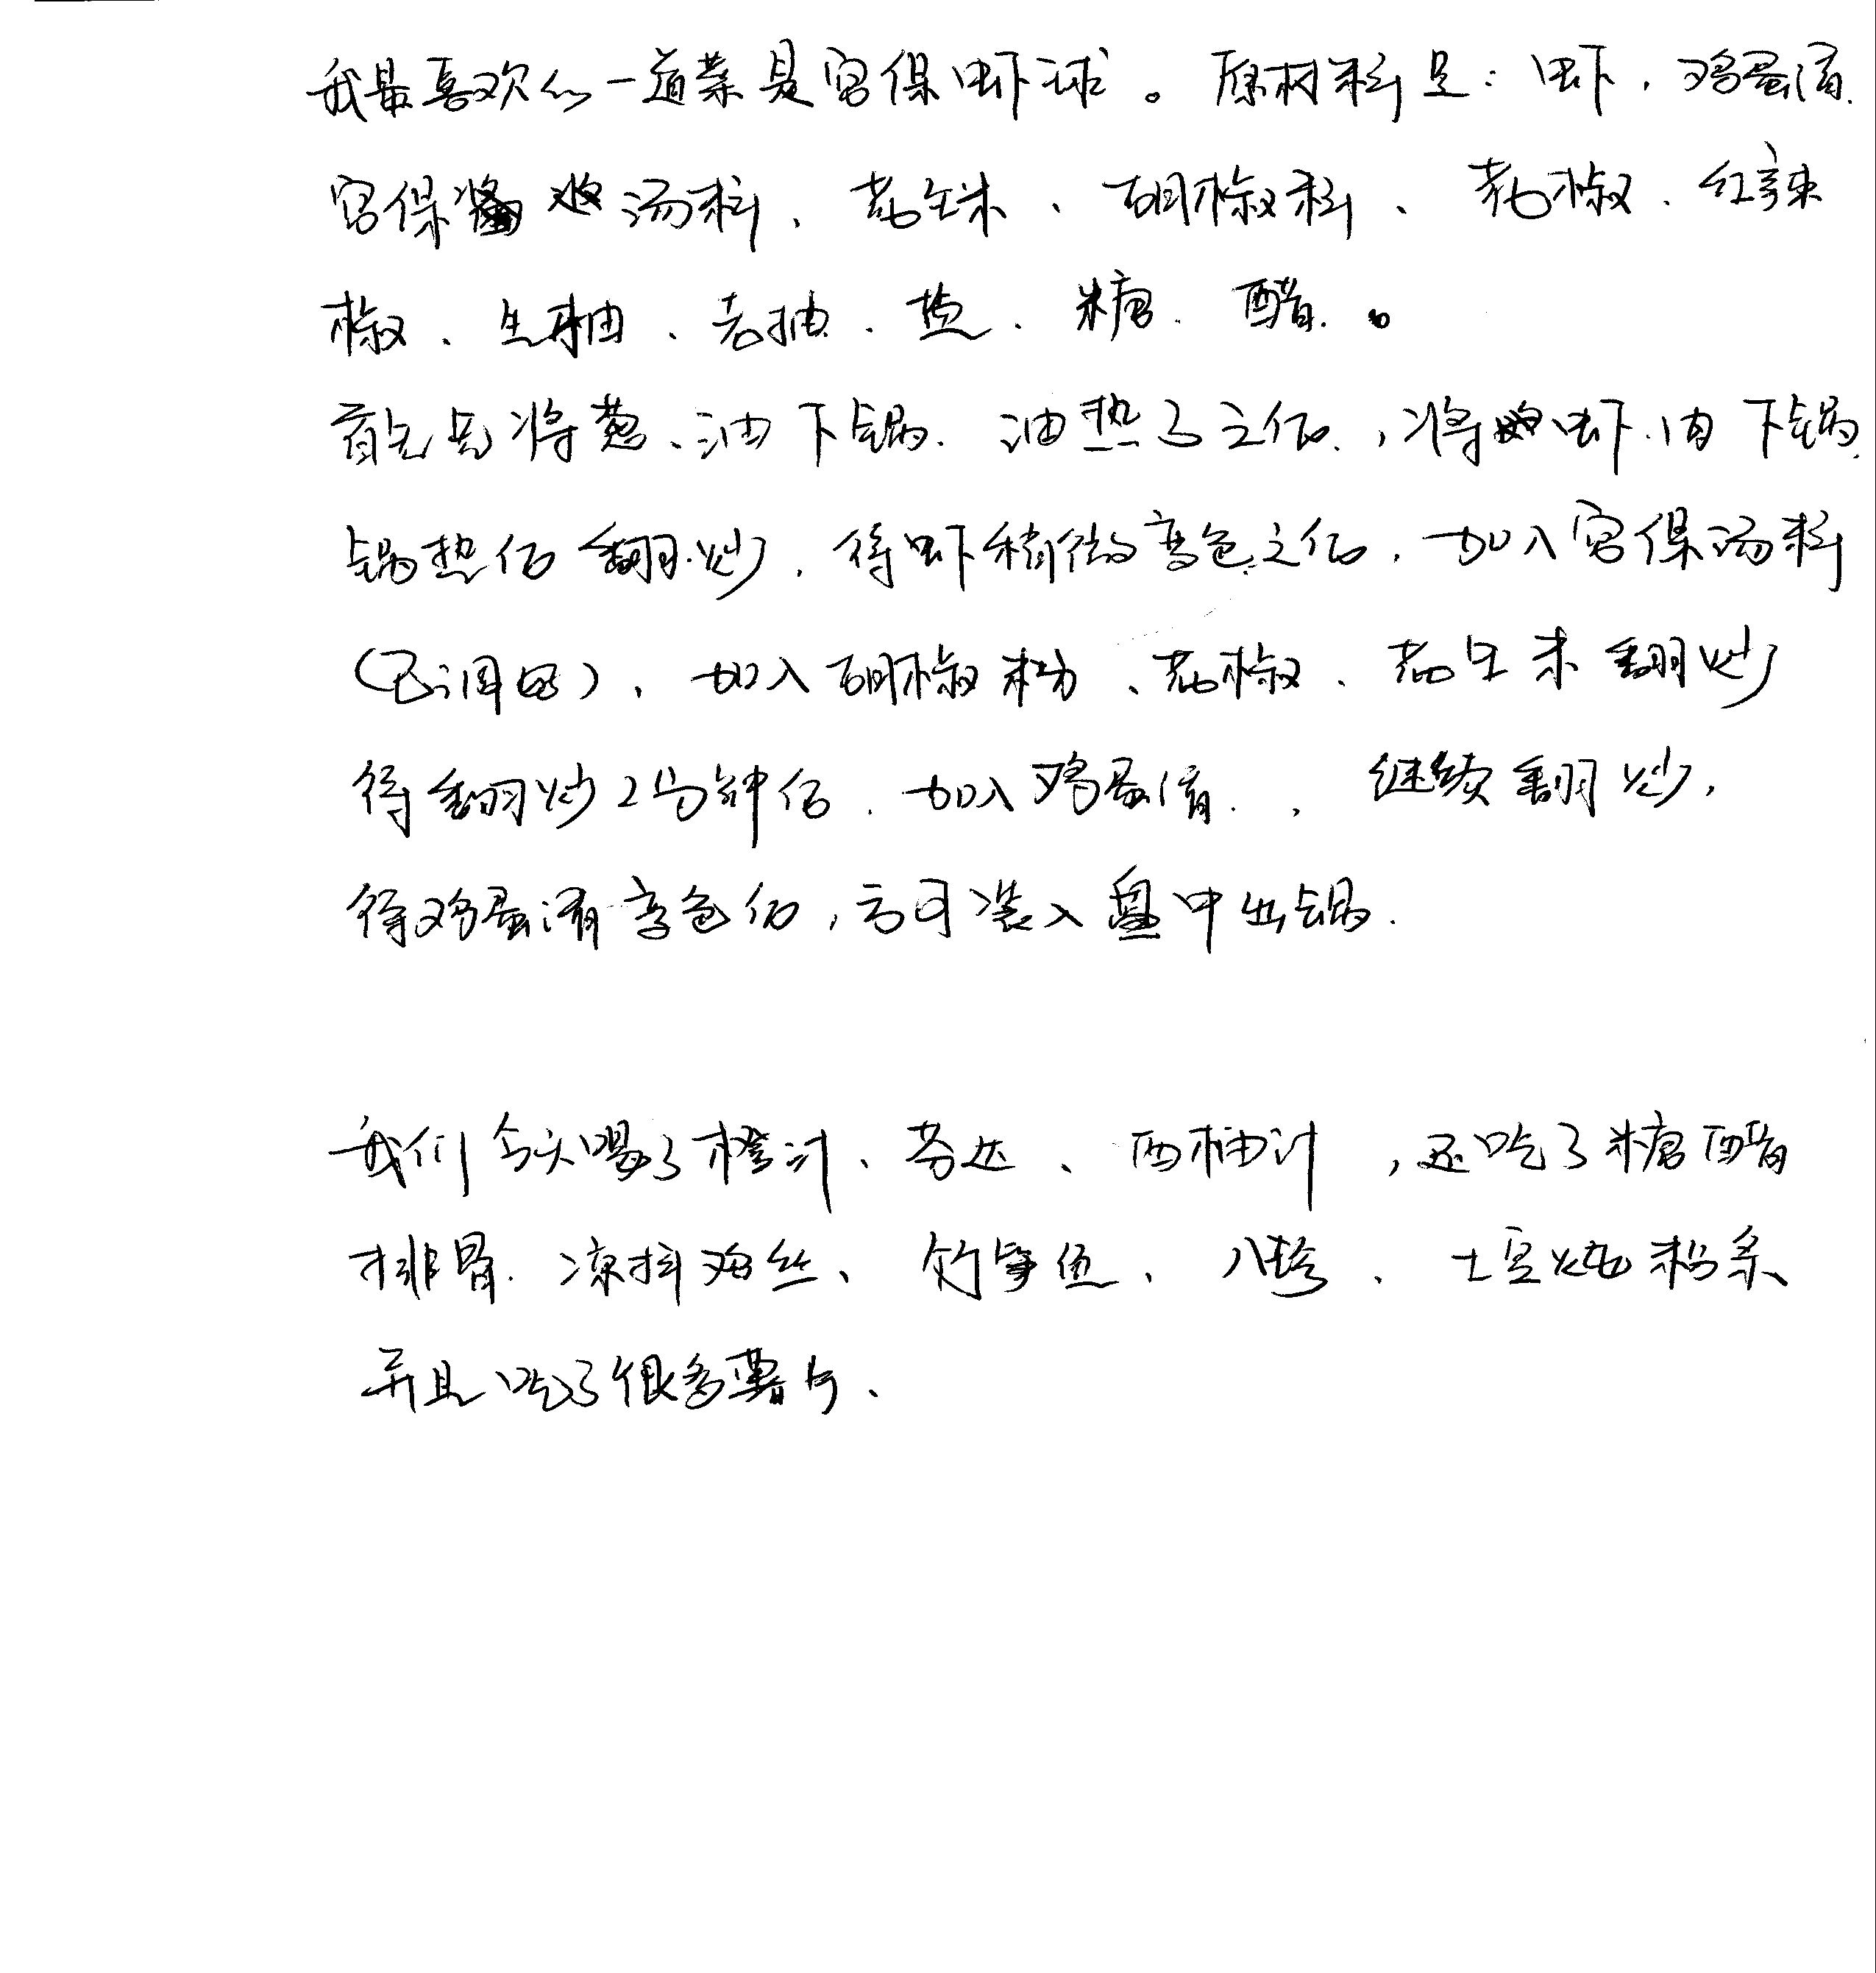 我最喜欢的一道菜是宫保虾球。原材料是：虾，鸡蛋清、
宫保汤料、花生米、胡椒料、花椒、红辣
椒、生抽、老抽、盐、糖、醋。
首先先将葱、油下锅、油热了之后，将虾肉下锅
锅热后翻炒，待虾稍微变色之后，加入宫保汤料
（已调好），加入胡椒粉、花椒、花生米翻炒
待翻炒2分钟后、加入鸡蛋清，继续翻炒，
待鸡蛋清变色后，方可装入盘中出锅.
我们今天喝了橙汁、芬达、西柚汁，还吃了糖醋
排骨、凉拌鸡丝、竹笋鱼、八珍、土豆炖粉条
并且吃了很多薯片、